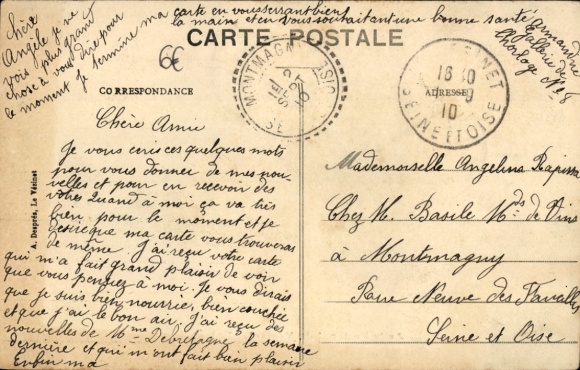 Chère
Angèle je ne
vous plus grand
chose à vous dire pour
le moment je termine ma carte en vous serrant bien
la main et en vous souhaitant une bonne santé
Armandine
Gallerie de
l'horloge No 8
CARTE POSTALE
6€
MONTMAGNY
SEPT
10
16 10
9
10
SEINE ET OISE
CORRESPONDANCE
ADRESSE
A. Desprès, Le Vésinet
Chère Amie
Je vous ecris ces quelques mots
pour vous donner de mes nou-
velles et pour en recevoir des
votres Quand à moi ça va très
bien pour le moment et je
desire que ma carte vous trouveras
de même. J'ai reçu votre carte
qui m'a fait grand plaisir de voir
que vous pensiez à moi. Je vous dirais
que je suis bien nourrie, bien couchée
et que j'ai le bon air. J'ai reçu des
nouvelles de Mme la semaine
dernière et qui m'ont fait bon plaisir
Enfin ma
Mademoiselle Angelina
Chez M. Basile Mds de Vins
à Montmagny
Rue Neuve des
Seine et Oise